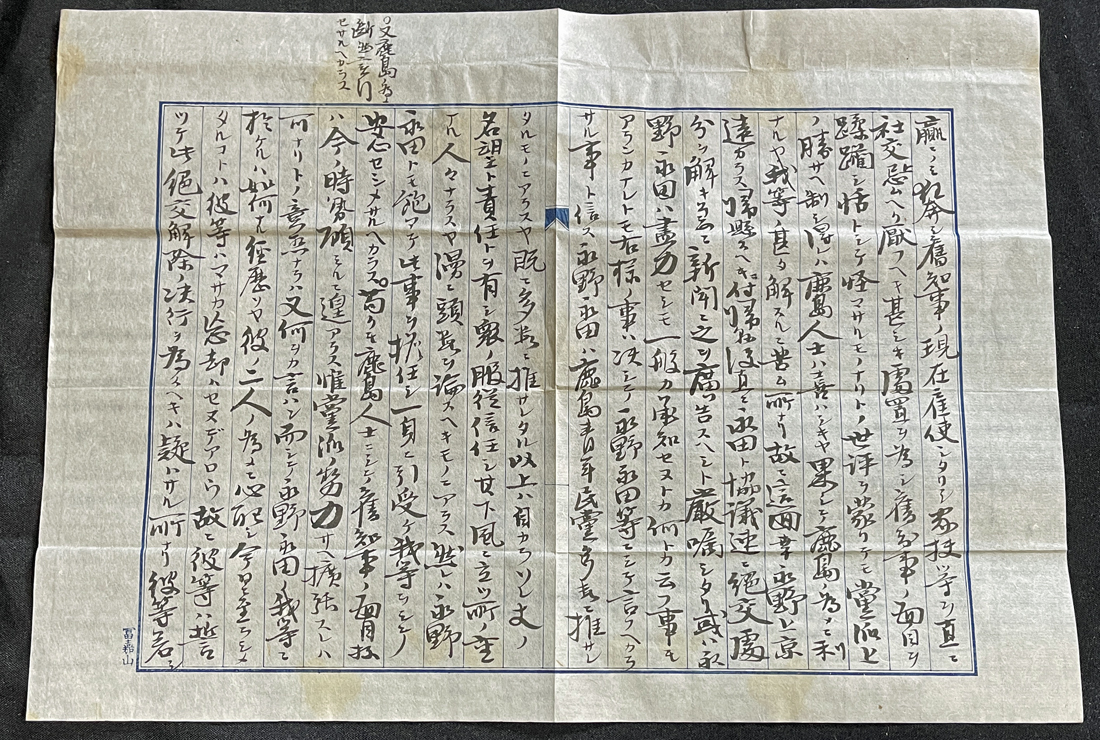 又鹿島ノ為メ
断然ニ実行
セサルヘカラス
贏ミノミ狂奔シ旧知事ノ現在雇使シタリシ家扶等ヲ直ニ
社交忌ムヘク厭フヘキ甚シキ処置ヲ為シ旧知事ノ面目ヲ
蹂躙シ恬トシテ怪マサルモノナリトノ世評ヲ蒙リテモ党派上
ノ勝サヘ制シ得レハ鹿島人士ハ喜ハシキヤ果シテ鹿島ノ為メニ利
ナルヤ我等ノ甚タ解スルニ苦ム所ナリ故ニ這回幸永野上京
遠カラス帰県スヘキニ付帰社後直ニ永田ト協議速ニ絶交処
分ヲ解キ去ニ新聞ニ之ヲ広告スヘシト厳嘱シタリ或ハ永
野永田ハ尽力セシモ一般カ承知セヌトカ何トカ云フ事モ
アランカナレトモ右様ノ事ハ決シテ永野永田等ニシテ言フヘカラ
サル事ト信ス永野永田ハ鹿島青年民党多数ニ推サレ
タルモノニアラスヤ既ニ多数ニ推サレタル以上ハ自カラソレ丈ノ
名望ト責任トヲ有シ衆ノ服従信任シ其下風ニ立ツ所ノ重
ナル人々ナラスヤ漫ニ頭数ヲ論スヘキモノニアラス然レハ永野
永田トモ飽マテ此事ヲ担任シ一身ニ引受ケ我等ヲシテ
安心セシメサルヘカラス苟クモ鹿島人士ニシテ旧知事ノ面目抔
ハ今ノ時勢顧ミルニ遑アラス惟党派ノ勢力サヘ拡張スレハ
何ナリトノ意志ナラハ又何ヲカ言ハン而シテ永野永田ノ我等ニ
於ケルハ如何ナル経歴ソヤ彼ノ二人ノ為メニ心配シ今日ニ至ラシメ
タルコトハ彼等ハマサカ忘却ハセヌデアロウ故ニ彼等ハ誓
ツテ此絶交解除ノ決行ヲ為スヘキハ疑ハサル所ナリ彼等若シ